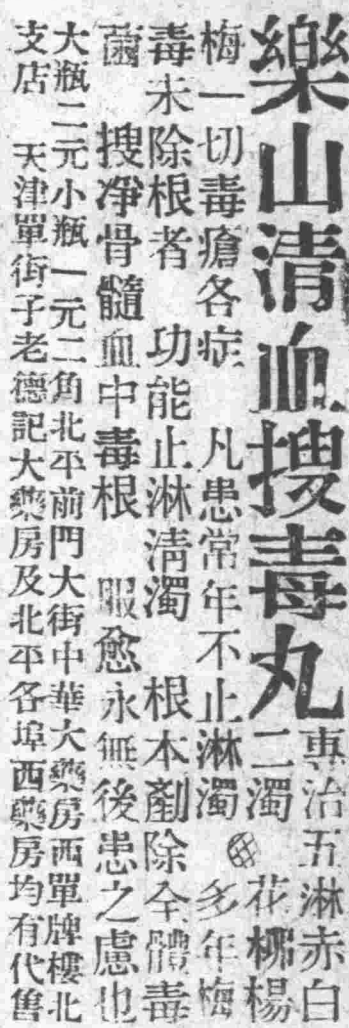 樂山清血搜毒丸
專治五淋赤白
二濁　花柳楊
梅一切毒瘡各症　凡患常年不止淋濁　多年梅
毒未除根者　功能止淋清濁　根本剷除全體毒
菌　搜淨骨髓血中毒根　服愈永無後患之慮也
大瓶二元小瓶一元二角北平前門大街中華大藥房西單牌樓北
支店　天津單街子老德記大藥房及北平各埠西藥房均有代售